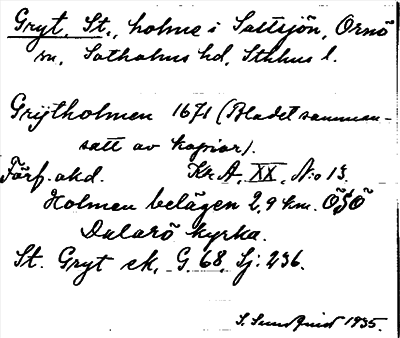 Gryt, St., holme i Saltsjön, Ornö
sn, Sotholms hd, Sthlms l.
Grijtholmen 1671 (Bladet samman-
satt av kopior).
Förf. okd. Kr A, XX, N:o 13.
Holmen belägen 2,9 km. ÖSÖ
Dalarö kyrka.
St. Gryt ek, G. 68, Sj: 236.
S. Sundquist 1935.